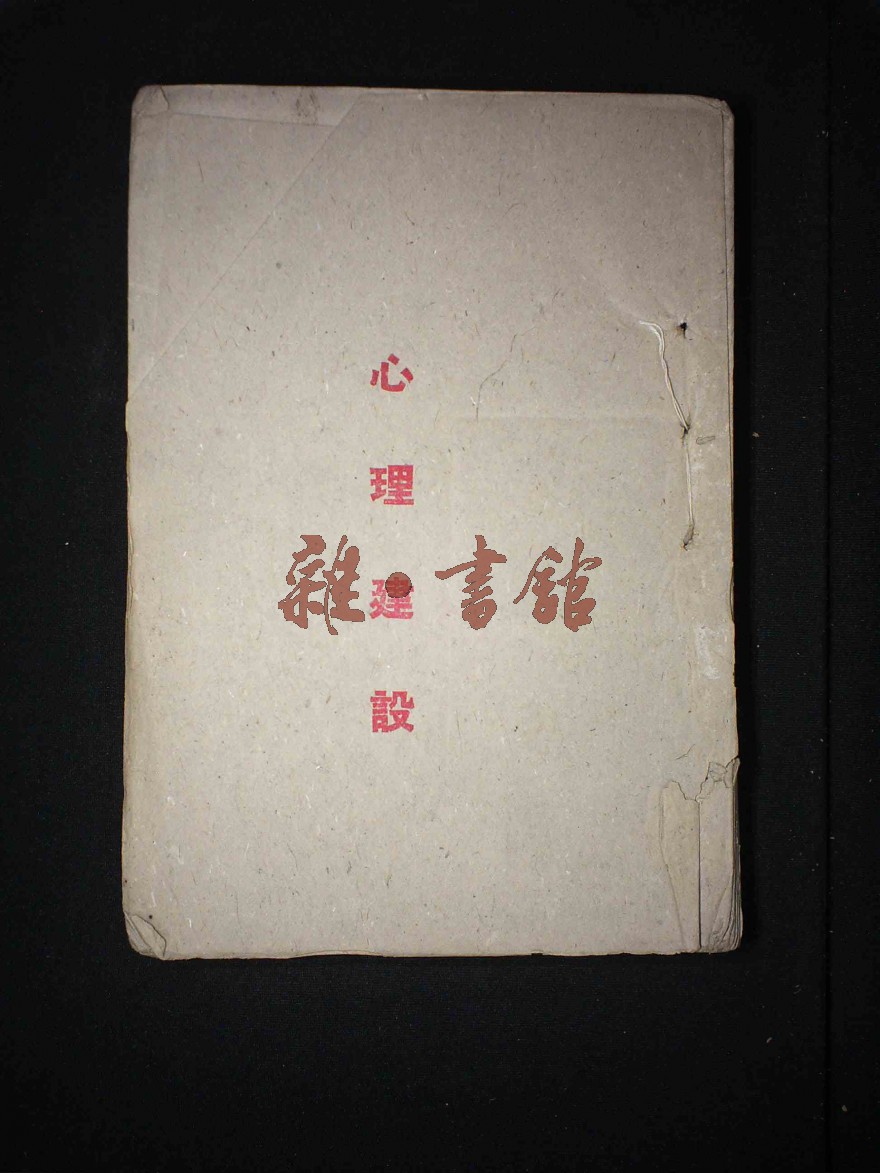 心理建設
雜·書館